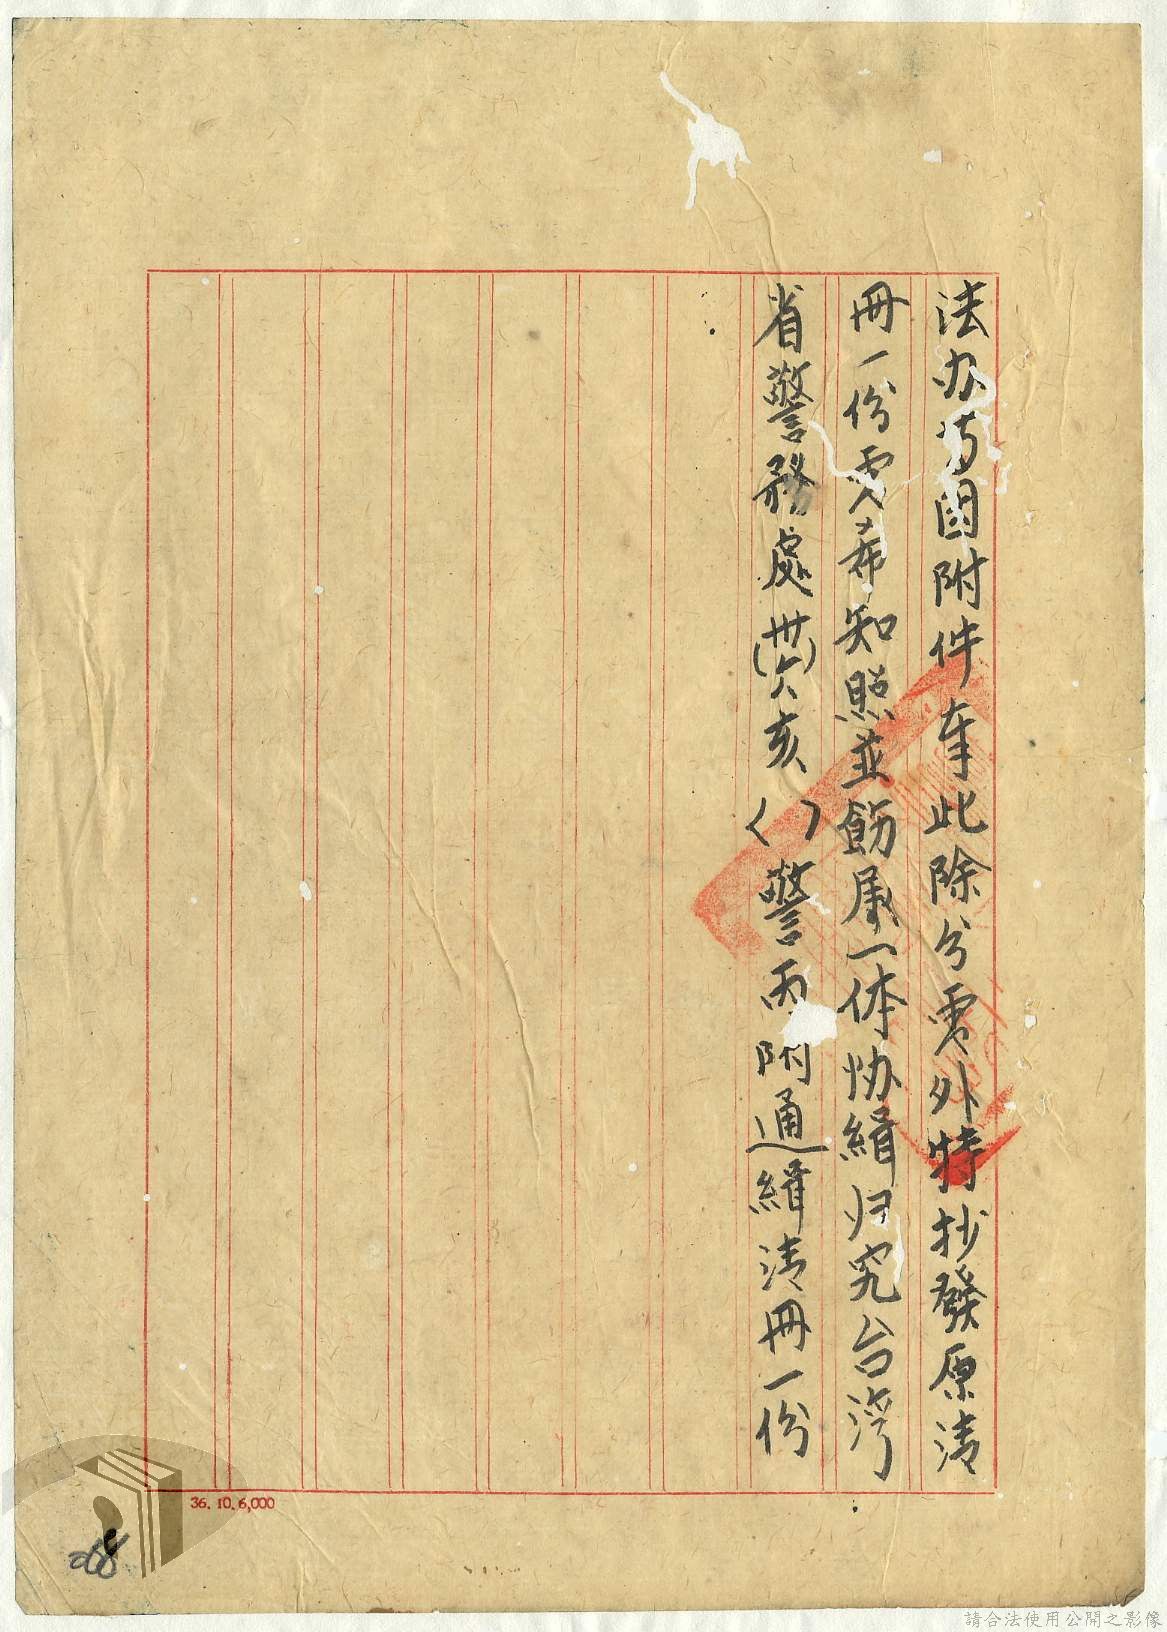 法办等因附件奉此除分電外特抄發原清
冊一份電希知照並飭屬一体协緝归究台湾
省警務處卅六亥( )警丙附通緝清冊一份
36.10.6,000
268
請合法使用公開之影像